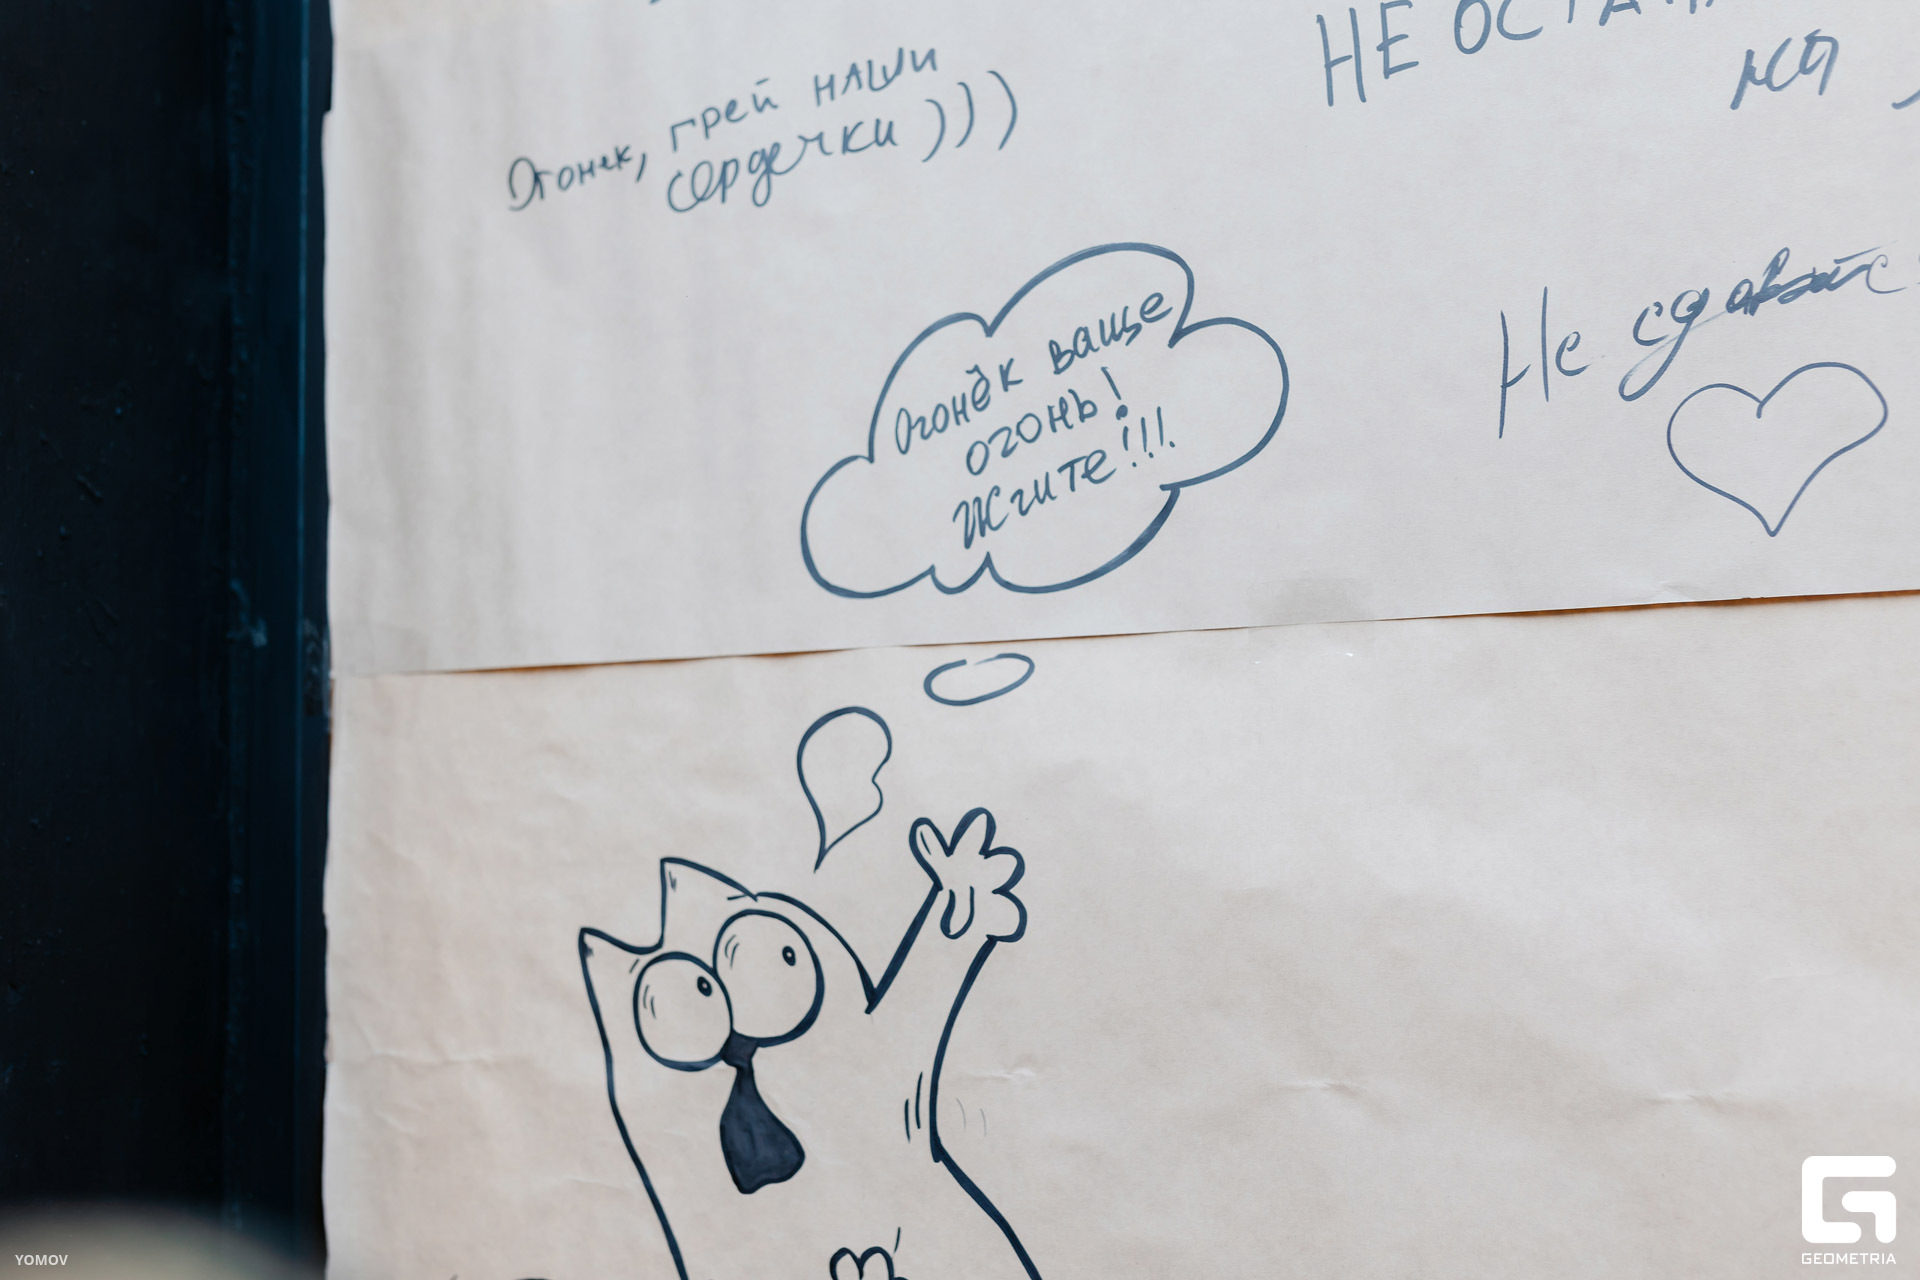 Огонек, грей наши
сердечки)))
НЕ
Огонёк ваще
огонь!
Жгите!!!
Не
YOMOV
GEOMETRIA